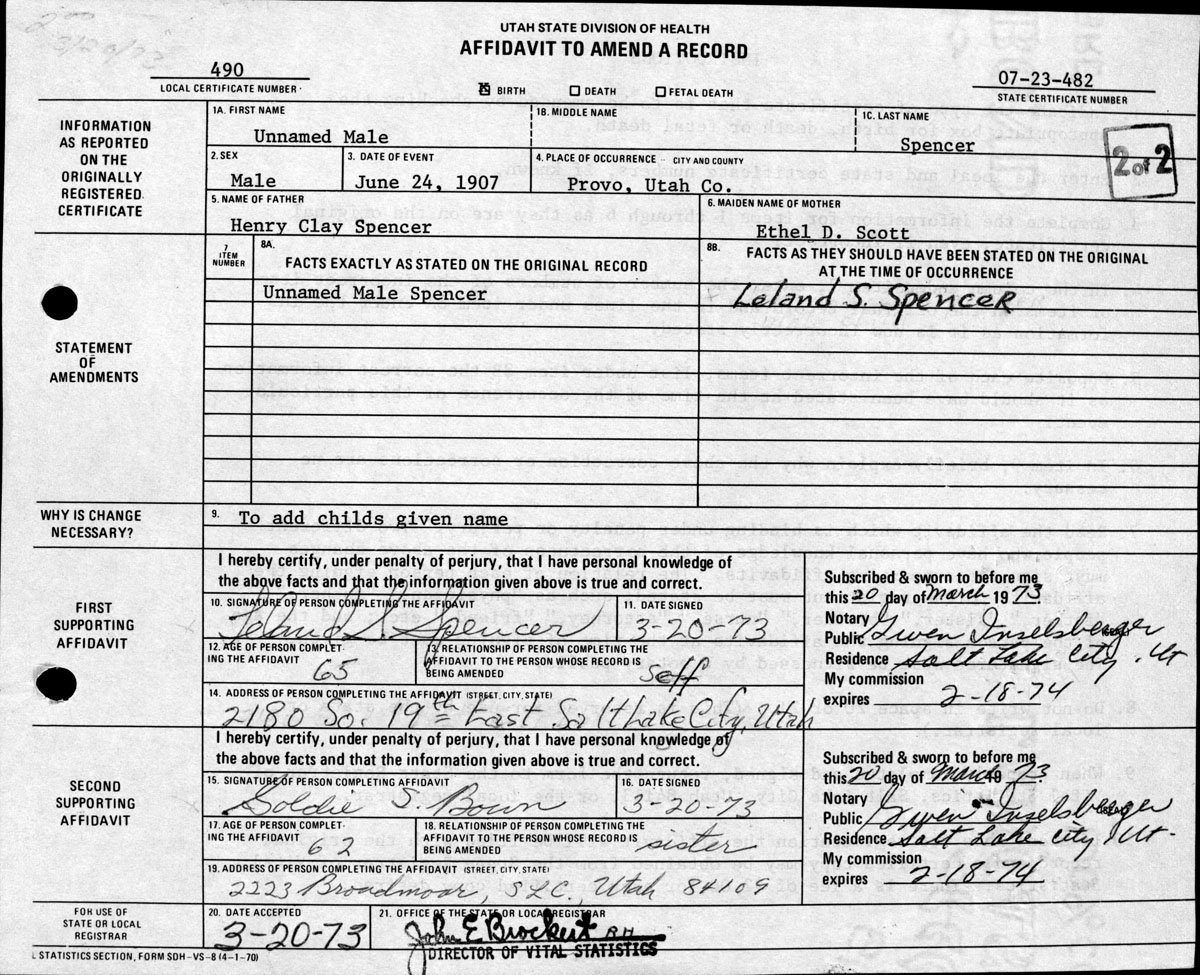 UTAH STATE DIVISION OF HEALTH
AFFIDAVIT TO AMEND A RECORD
3/20/73
490
LOCAL CERTIFICATE NUMBER
☒ BIRTH ☐ DEATH ☐ FETAL DEATH
07-23-482
STATE CERTIFICATE NUMBER
2 of 2
INFORMATION
AS REPORTED
ON THE
ORIGINALLY
REGISTERED
CERTIFICATE
1A. FIRST NAME
Unnamed Male
1B. MIDDLE NAME
1C. LAST NAME
Spencer
2. SEX
Male
3. DATE OF EVENT
June 24, 1907
4. PLACE OF OCCURRENCE - CITY AND COUNTY
Provo, Utah Co.
5. NAME OF FATHER
Henry Clay Spencer
6. MAIDEN NAME OF MOTHER
Ethel D. Scott
STATEMENT
OF
AMENDMENTS
7
ITEM
NUMBER
8A.
FACTS EXACTLY AS STATED ON THE ORIGINAL RECORD
8B.
FACTS AS THEY SHOULD HAVE BEEN STATED ON THE ORIGINAL
AT THE TIME OF OCCURRENCE
Unnamed Male Spencer
Leland S. Spencer
WHY IS CHANGE
NECESSARY?
9. To add childs given name
FIRST
SUPPORTING
AFFIDAVIT
I hereby certify, under penalty of perjury, that I have personal knowledge of
the above facts and that the information given above is true and correct.
10. SIGNATURE OF PERSON COMPLETING THE AFFIDAVIT
Leland S. Spencer
11. DATE SIGNED
3-20-73
12. AGE OF PERSON COMPLET-
ING THE AFFIDAVIT
65
13. RELATIONSHIP OF PERSON COMPLETING THE
AFFIDAVIT TO THE PERSON WHOSE RECORD IS
BEING AMENDED
Self
14. ADDRESS OF PERSON COMPLETING THE AFFIDAVIT (STREET, CITY, STATE)
2180 So. 19th East Salt Lake City, Utah
Subscribed & sworn to before me
this 20 day of March 1973
Notary
Public Gwen Inselsberger
Residence Salt Lake City, Ut
My commission
expires 2-18-74
SECOND
SUPPORTING
AFFIDAVIT
I hereby certify, under penalty of perjury, that I have personal knowledge of
the above facts and that the information given above is true and correct.
15. SIGNATURE OF PERSON COMPLETING AFFIDAVIT
Goldie S. Bown
16. DATE SIGNED
3-20-73
17. AGE OF PERSON COMPLET-
ING THE AFFIDAVIT
62
18. RELATIONSHIP OF PERSON COMPLETING THE
AFFIDAVIT TO THE PERSON WHOSE RECORD IS
BEING AMENDED
sister
19. ADDRESS OF PERSON COMPLETING AFFIDAVIT (STREET, CITY, STATE)
2223 Broadmoor, SLC, Utah 84109
Subscribed & sworn to before me
this 20 day of March 1973
Notary
Public Gwen Inselsberger
Residence Salt Lake City, Ut.
My commission
expires 2-18-74
FOR USE OF
STATE OR LOCAL
REGISTRAR
20. DATE ACCEPTED
3-20-73
21. OFFICE OF THE STATE OR LOCAL REGISTRAR
John E Brockert RH
DIRECTOR OF VITAL STATISTICS
L STATISTICS SECTION, FORM SDH-VS-8 (4-1-70)